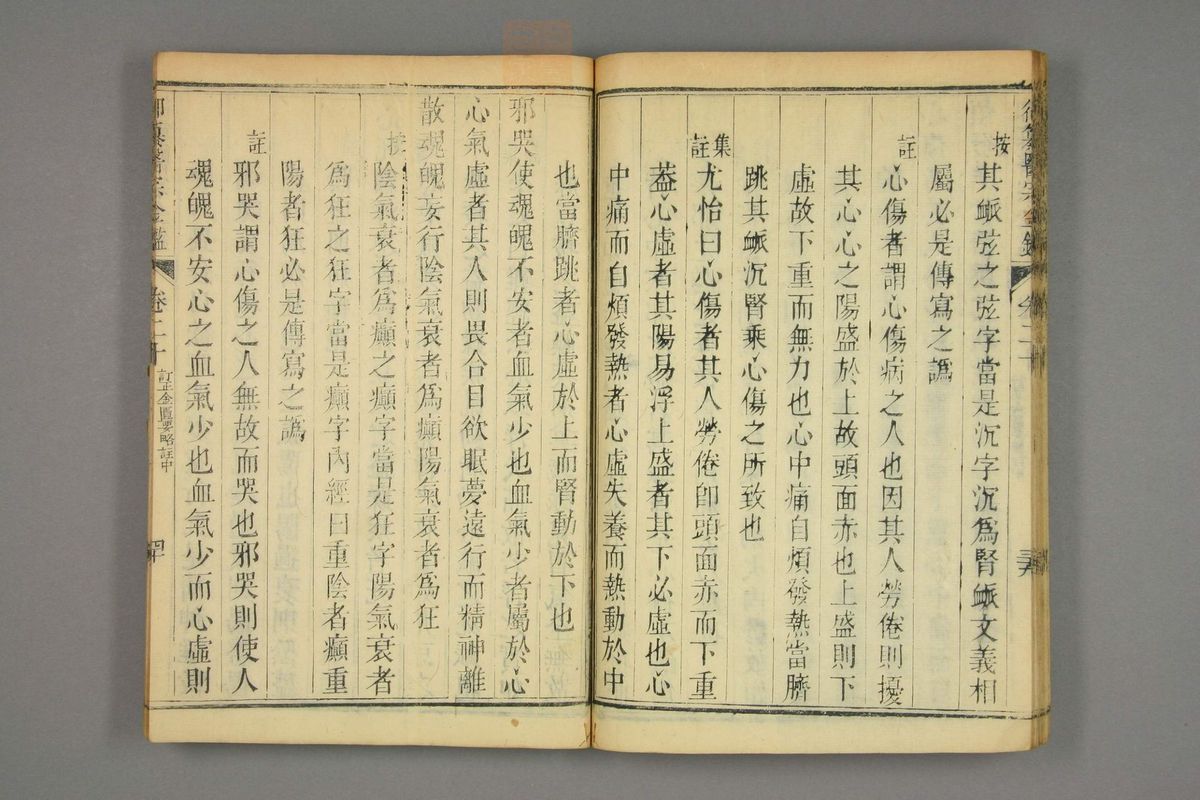 按
其䘑弦之弦字當是沉字沉爲腎䘑文義相
屬必是傳寫之譌
註
心傷者謂心傷病之人也因其人勞倦則擾
其心心之陽盛於上故頭面赤也上盛則下
虛故下重而無力也心中痛自煩發熱當臍
跳其䘑沉腎乘心傷之所致也
集註
尤怡曰心傷者其人勞倦卽頭面赤而下重
葢心虛者其陽易浮上盛者其下必虛也心
中痛而自煩發熱者心虛失養而熱動於中
也當臍跳者心虛於上而腎動於下也
邪哭使魂魄不安者血氣少也血氣少者屬於心
心氣虛者其人則畏合目欲眠夢遠行而精神離
散魂魄妄行陰氣衰者爲癲陽氣衰者爲狂
按
陰氣衰者爲癲之癲字當是狂字陽氣衰者
爲狂之狂字當是癲字內經曰重陰者癲重
陽者狂必是傳寫之譌
註
邪哭謂心傷之人無故而哭也邪哭則使人
魂魄不安心之血氣少也血氣少而心虛則
卷二十
訂正金匱要略註中